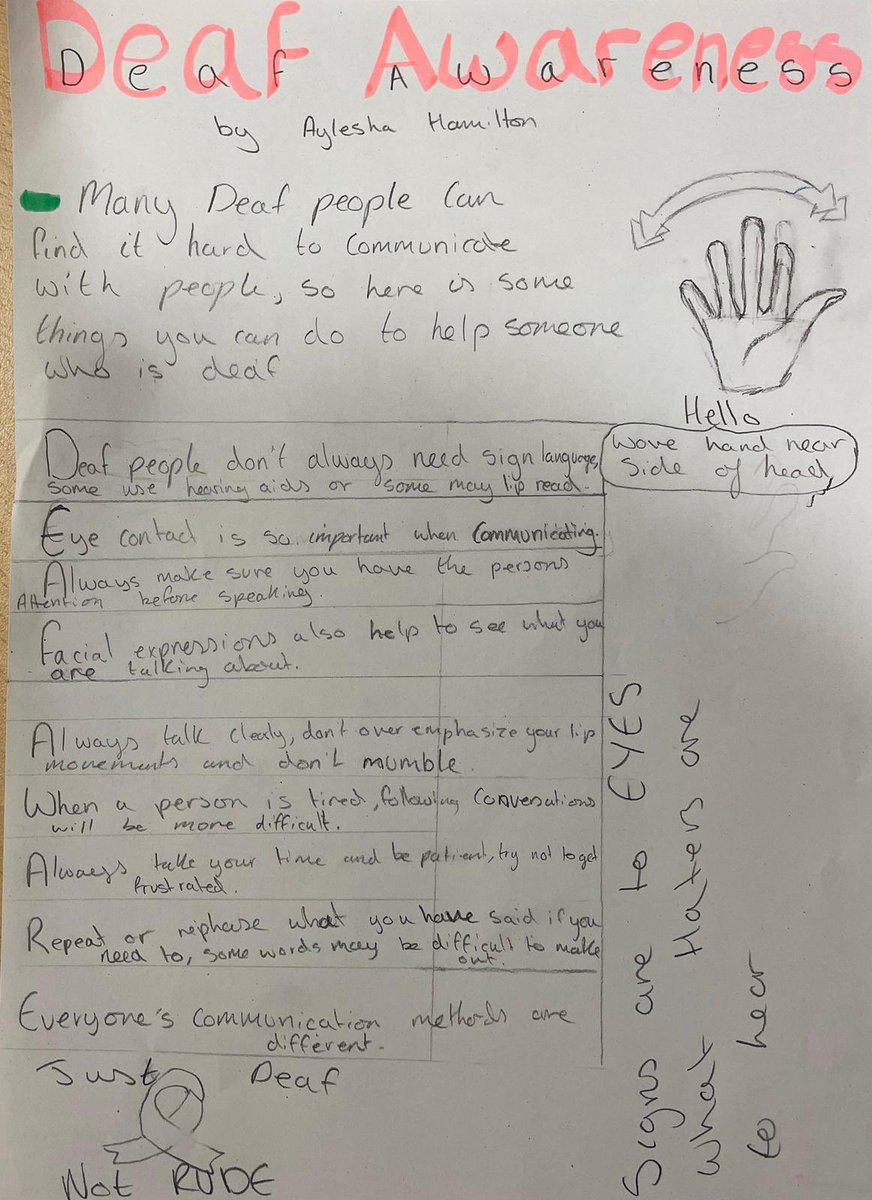 Deaf Awareness
Deaf Awareness
by Aylesha Hamilton
Many Deaf people can
find it hard to communicate
with people, so here is some
things you can do to help someone
who is deaf
Hello
Wave hand near
side of head
Deaf people don't always need sign language,
some use hearing aids or some may lip read.
Eye contact is so important when communicating.
Always make sure you have the persons
Attention before speaking.
Facial expressions also help to see what you
are talking about.
Always talk clealy, don't over emphasize your lip
movements and don't mumble.
When a person is tired, following conversations
will be more difficult.
Always take your time and be patient, try not to get
frustrated.
Repeat or rephase what you have said if you
need to, some words may be difficult to make
out.
Everyone's communication methods are
different.
Just Deaf
Not RUDE
Signs are to EYES
what Haters are
to hear